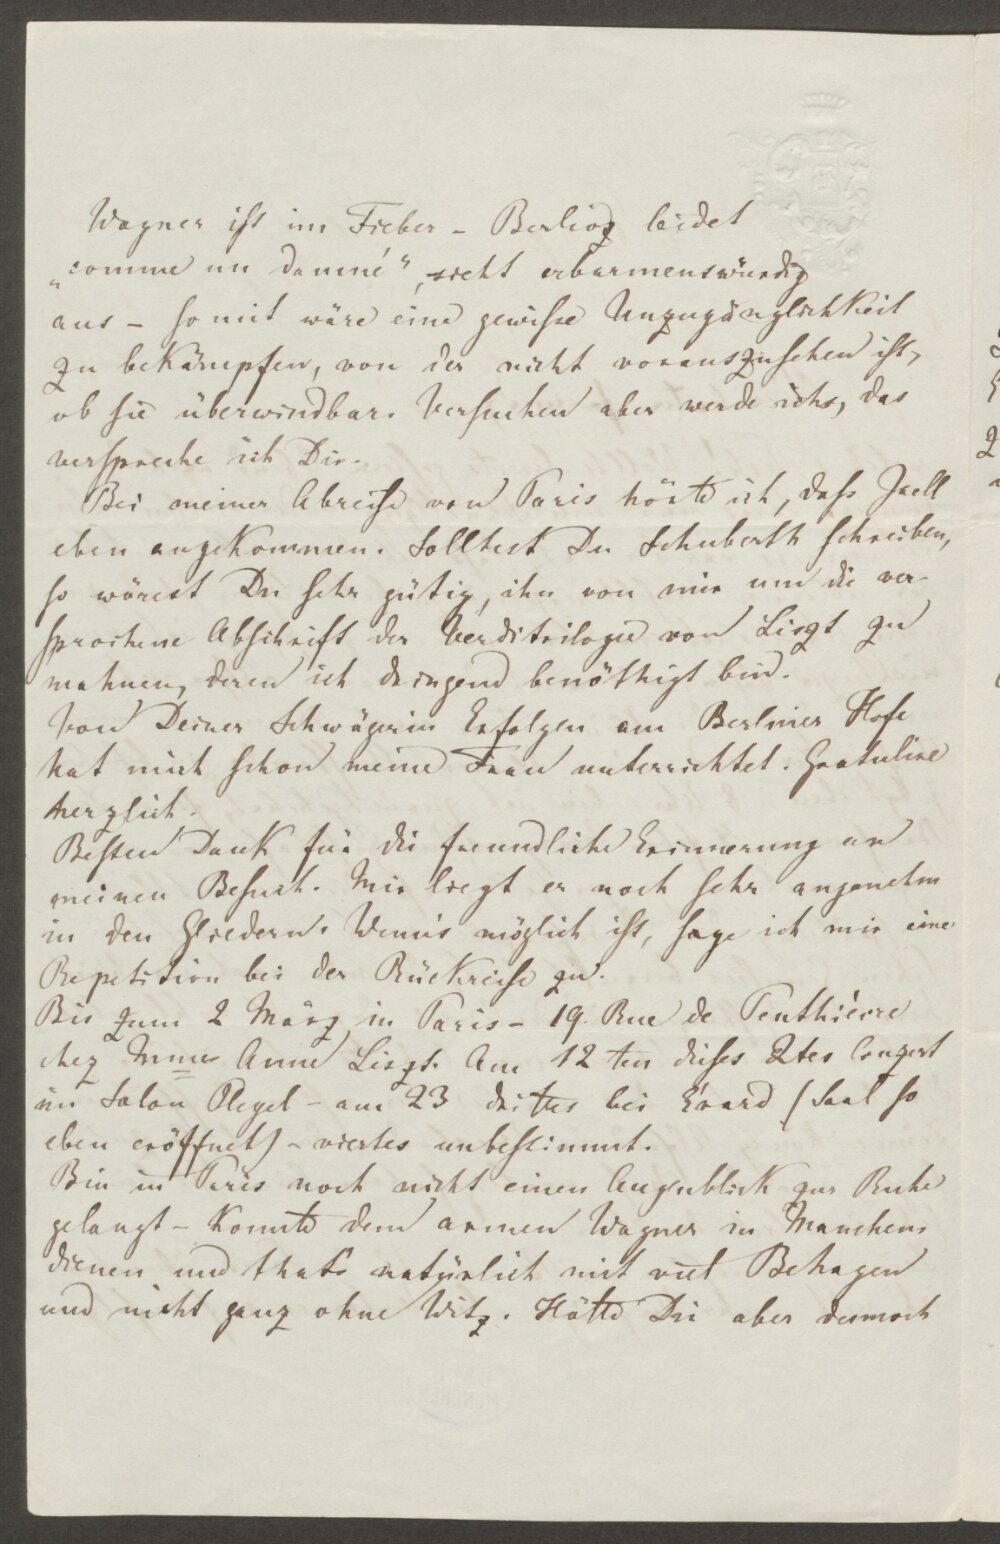 Wagner ist im Fieber – Berlioz leidet
„comme un damné“, sieht erbarmenswürdig
aus – somit wäre eine gewisse Unzugänglichkeit
zu bekämpfen, von der nicht vorauszusehen ist,
ob sie überwindbar. Versuchen aber werde ichs, das
verspreche ich Dir.
Bei meiner Abreise von Paris hörte ich, dass Jaell
eben angekommen. Solltest Du Schuberth schreiben,
so wärest Du sehr gütig, ihn von mir um die ver-
sprochene Abschrift der Verditrilogie von Liszt zu
mahnen, deren ich dringend benöthigt bin.
Von Deiner Schwägerin Erfolgen am Berliner Hofe
hat mich schon meine Frau unterrichtet. Gratulire
herzlich.
Besten Dank für die freundliche Erinnerung an
meinen Besuch. Mir liegt er noch sehr angenehm
in den Gliedern. Wenn's möglich ist, sage ich mir eine
Repetition bei der Rückreise zu.
Bis zum 2 März in Paris – 19. Rue de Penthièvre
chez Mme Anna Liszt. Am 12ten dieses 2tes Conzert
im Salon Pleyel – am 23 drittes bei Érard (Saal so
eben eröffnet) – viertes unbestimmt.
Bin in Paris noch nicht einen Augenblick zur Ruhe
gelangt – konnte dem armen Wagner in Manchem
dienen und that's natürlich mit viel Behagen
und nicht ganz ohne Witz. Hätte Dir aber dennoch